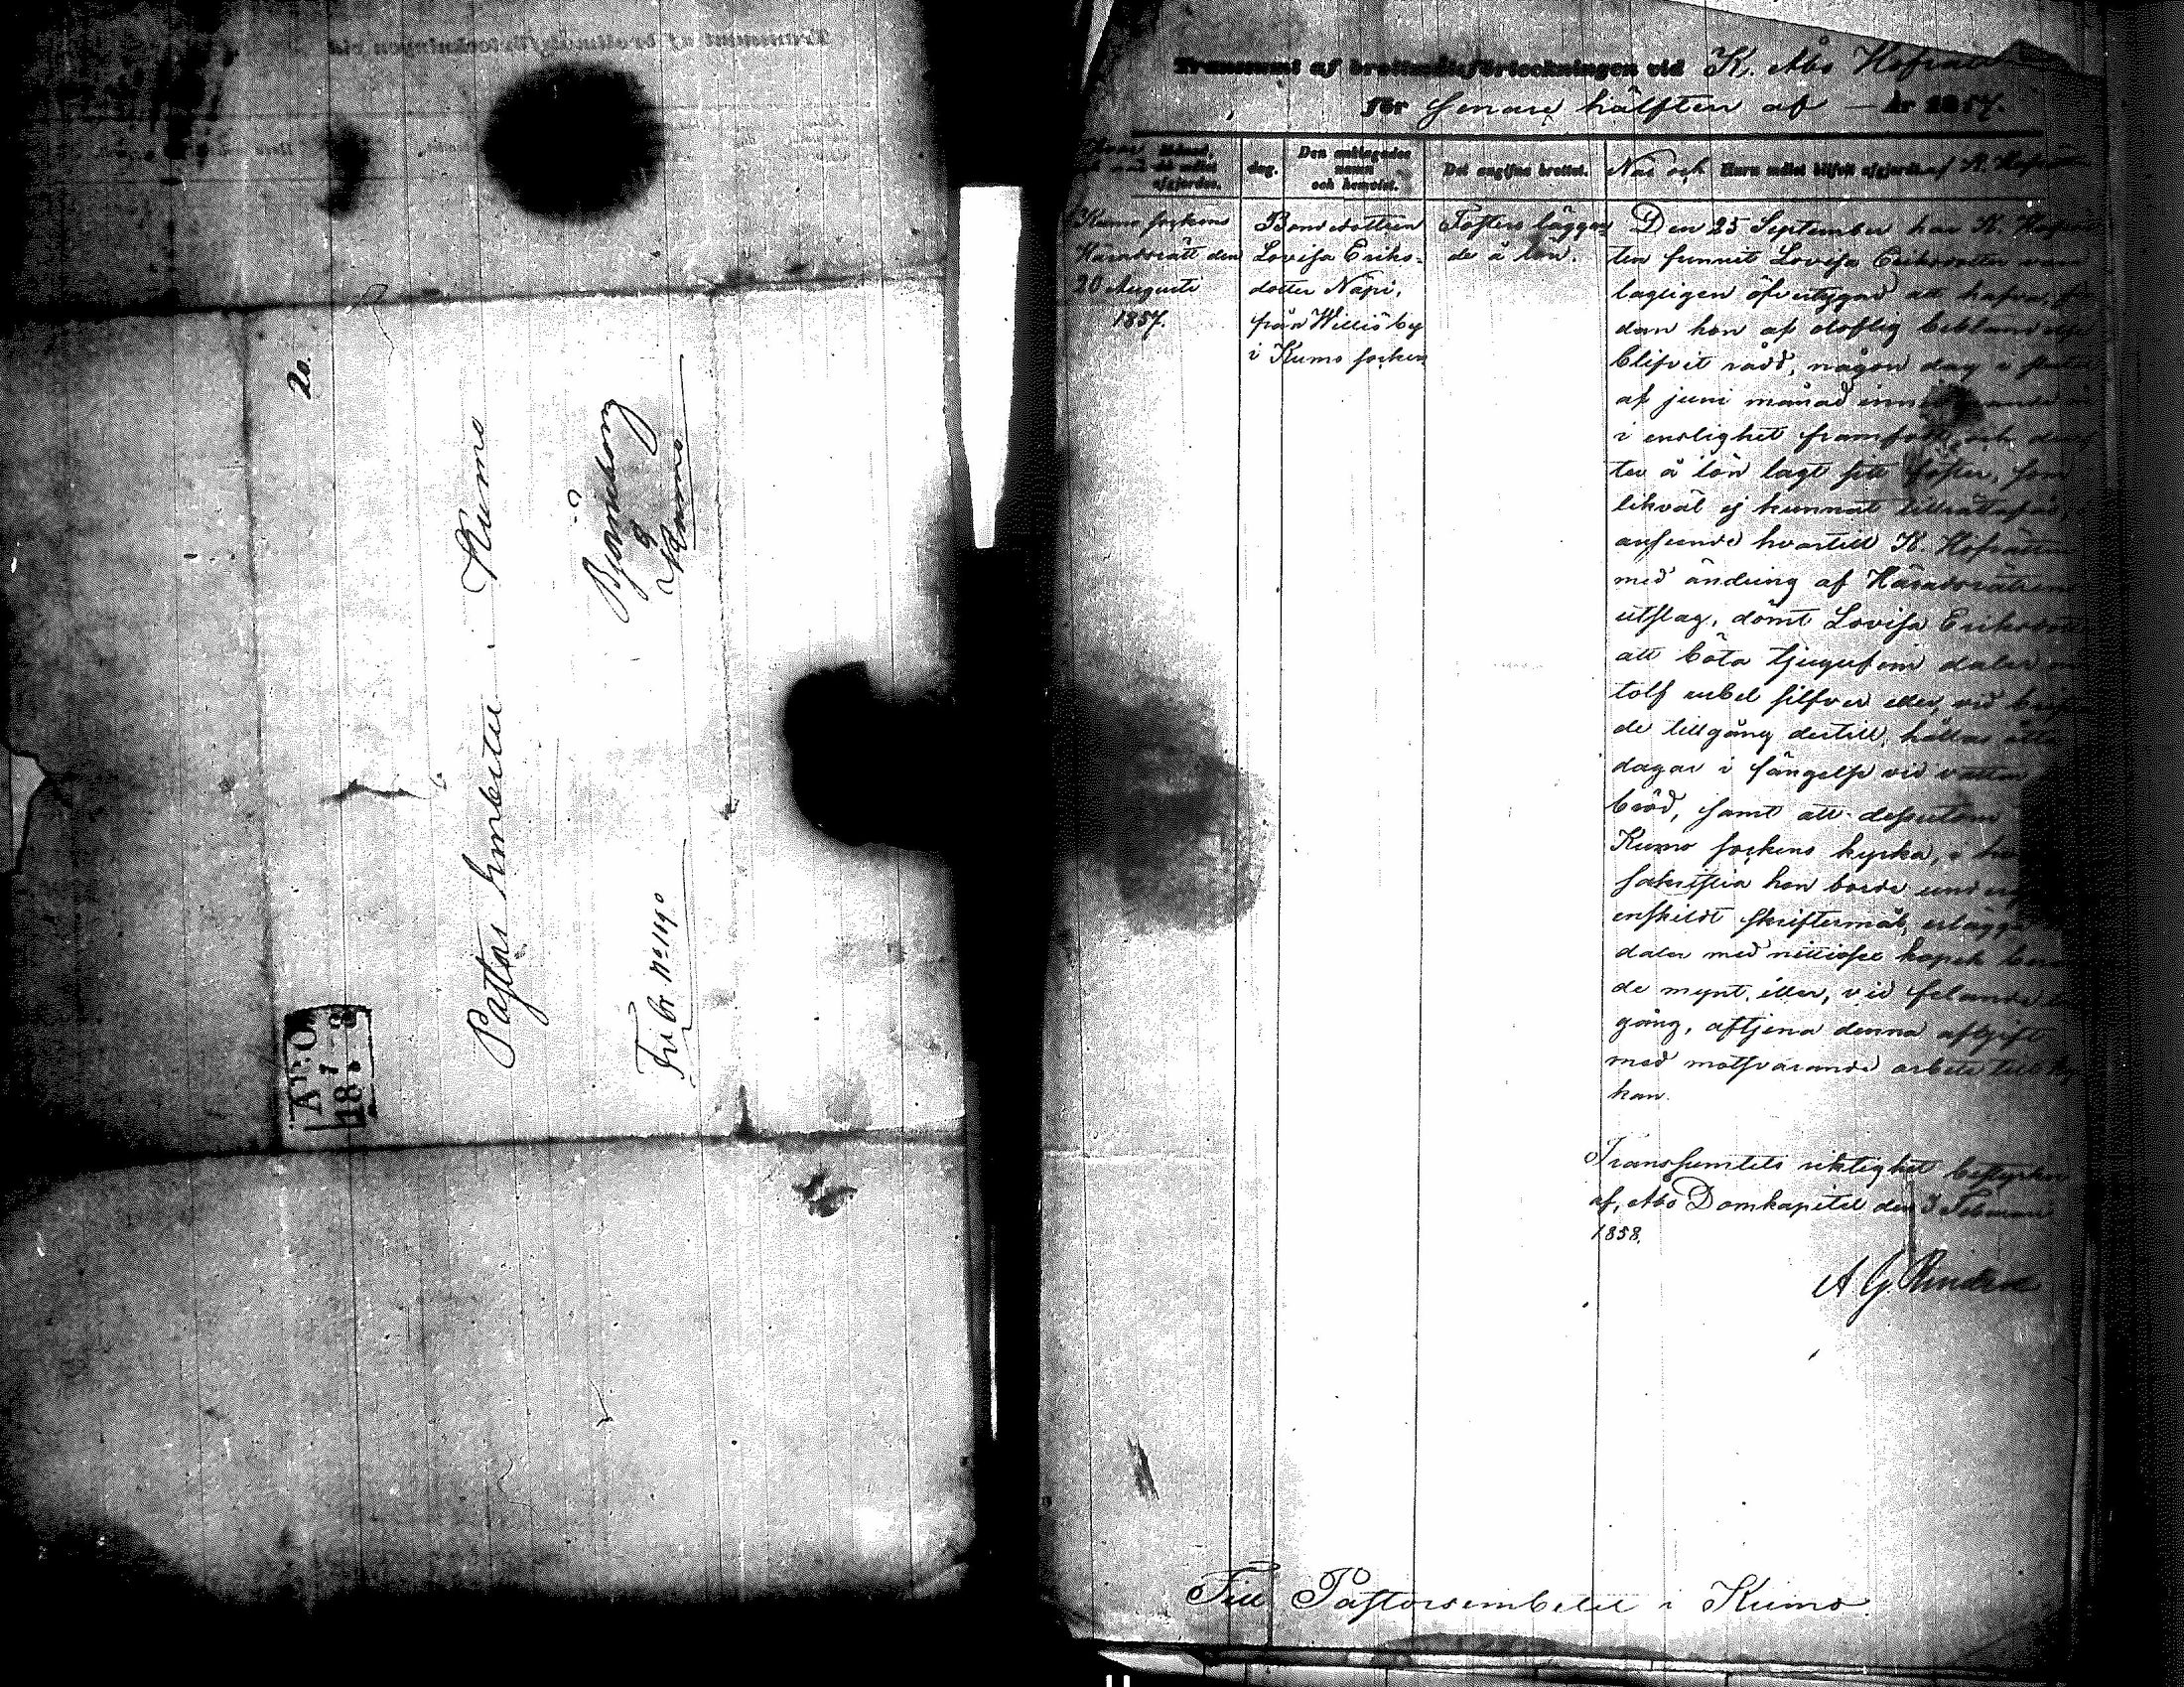 20.
Pastors Embetet Kumo
Björneborg
&
Kumo
Fribr. No 1490
ÅBO
7
18
Transsumt af brottmålsförteckningen vid K. Åbo Hofrätt
för senare hälften af — år 1857.
den målet afgjordes.
dag.
Den anklagades namn och hemvist.
Det angifna brottet.
När och Huru målet blifvit afgjordt af K. Hofrätten
Kumo sockens
Häradsrätt den
20 Augusti
1857.
Bondedottren
Lovisa Eriks-
dotter Näpi,
från Williöby
i Kumo socken
Fosters läggan-
de å lön.
Den 25 September har K. Hofrät
ten funnit Lovisa Eriksdotter vara
lagligen öfvertygad att hafva,
dan hon af oloflig beblandelse
blifvit rådd, någon dag i slutet
af juni månad innevarande
i enslighet framfödt och
ter å lön lagt sitt foster, som
likväl ej kunnat tillrättafås,
anseende hvartill K. Hofrätten
med ändring af Häradsrättens
utslag, dömt Lovisa Eriksdotter
att böta tjugufem daler
tolf rubel silfver eller, vid
de tillgång dertill, hållas åtta
dagar i fängelse vid vatten
bröd, samt att dessutom
Kumo sockens kyrka, i
sakristia hon borde undergå
enskildt skriftermål, erlägga
daler med nittiosex kopek
de mynt, eller, vid felande
gång, aftjena denna afgift
med motsvarande arbete till
kan.
Transsumtets riktighet bestyrkes
af, Åbo Domkapitel den 3 Februari
1858.
A G
Till Pastorsembetet i Kumo.